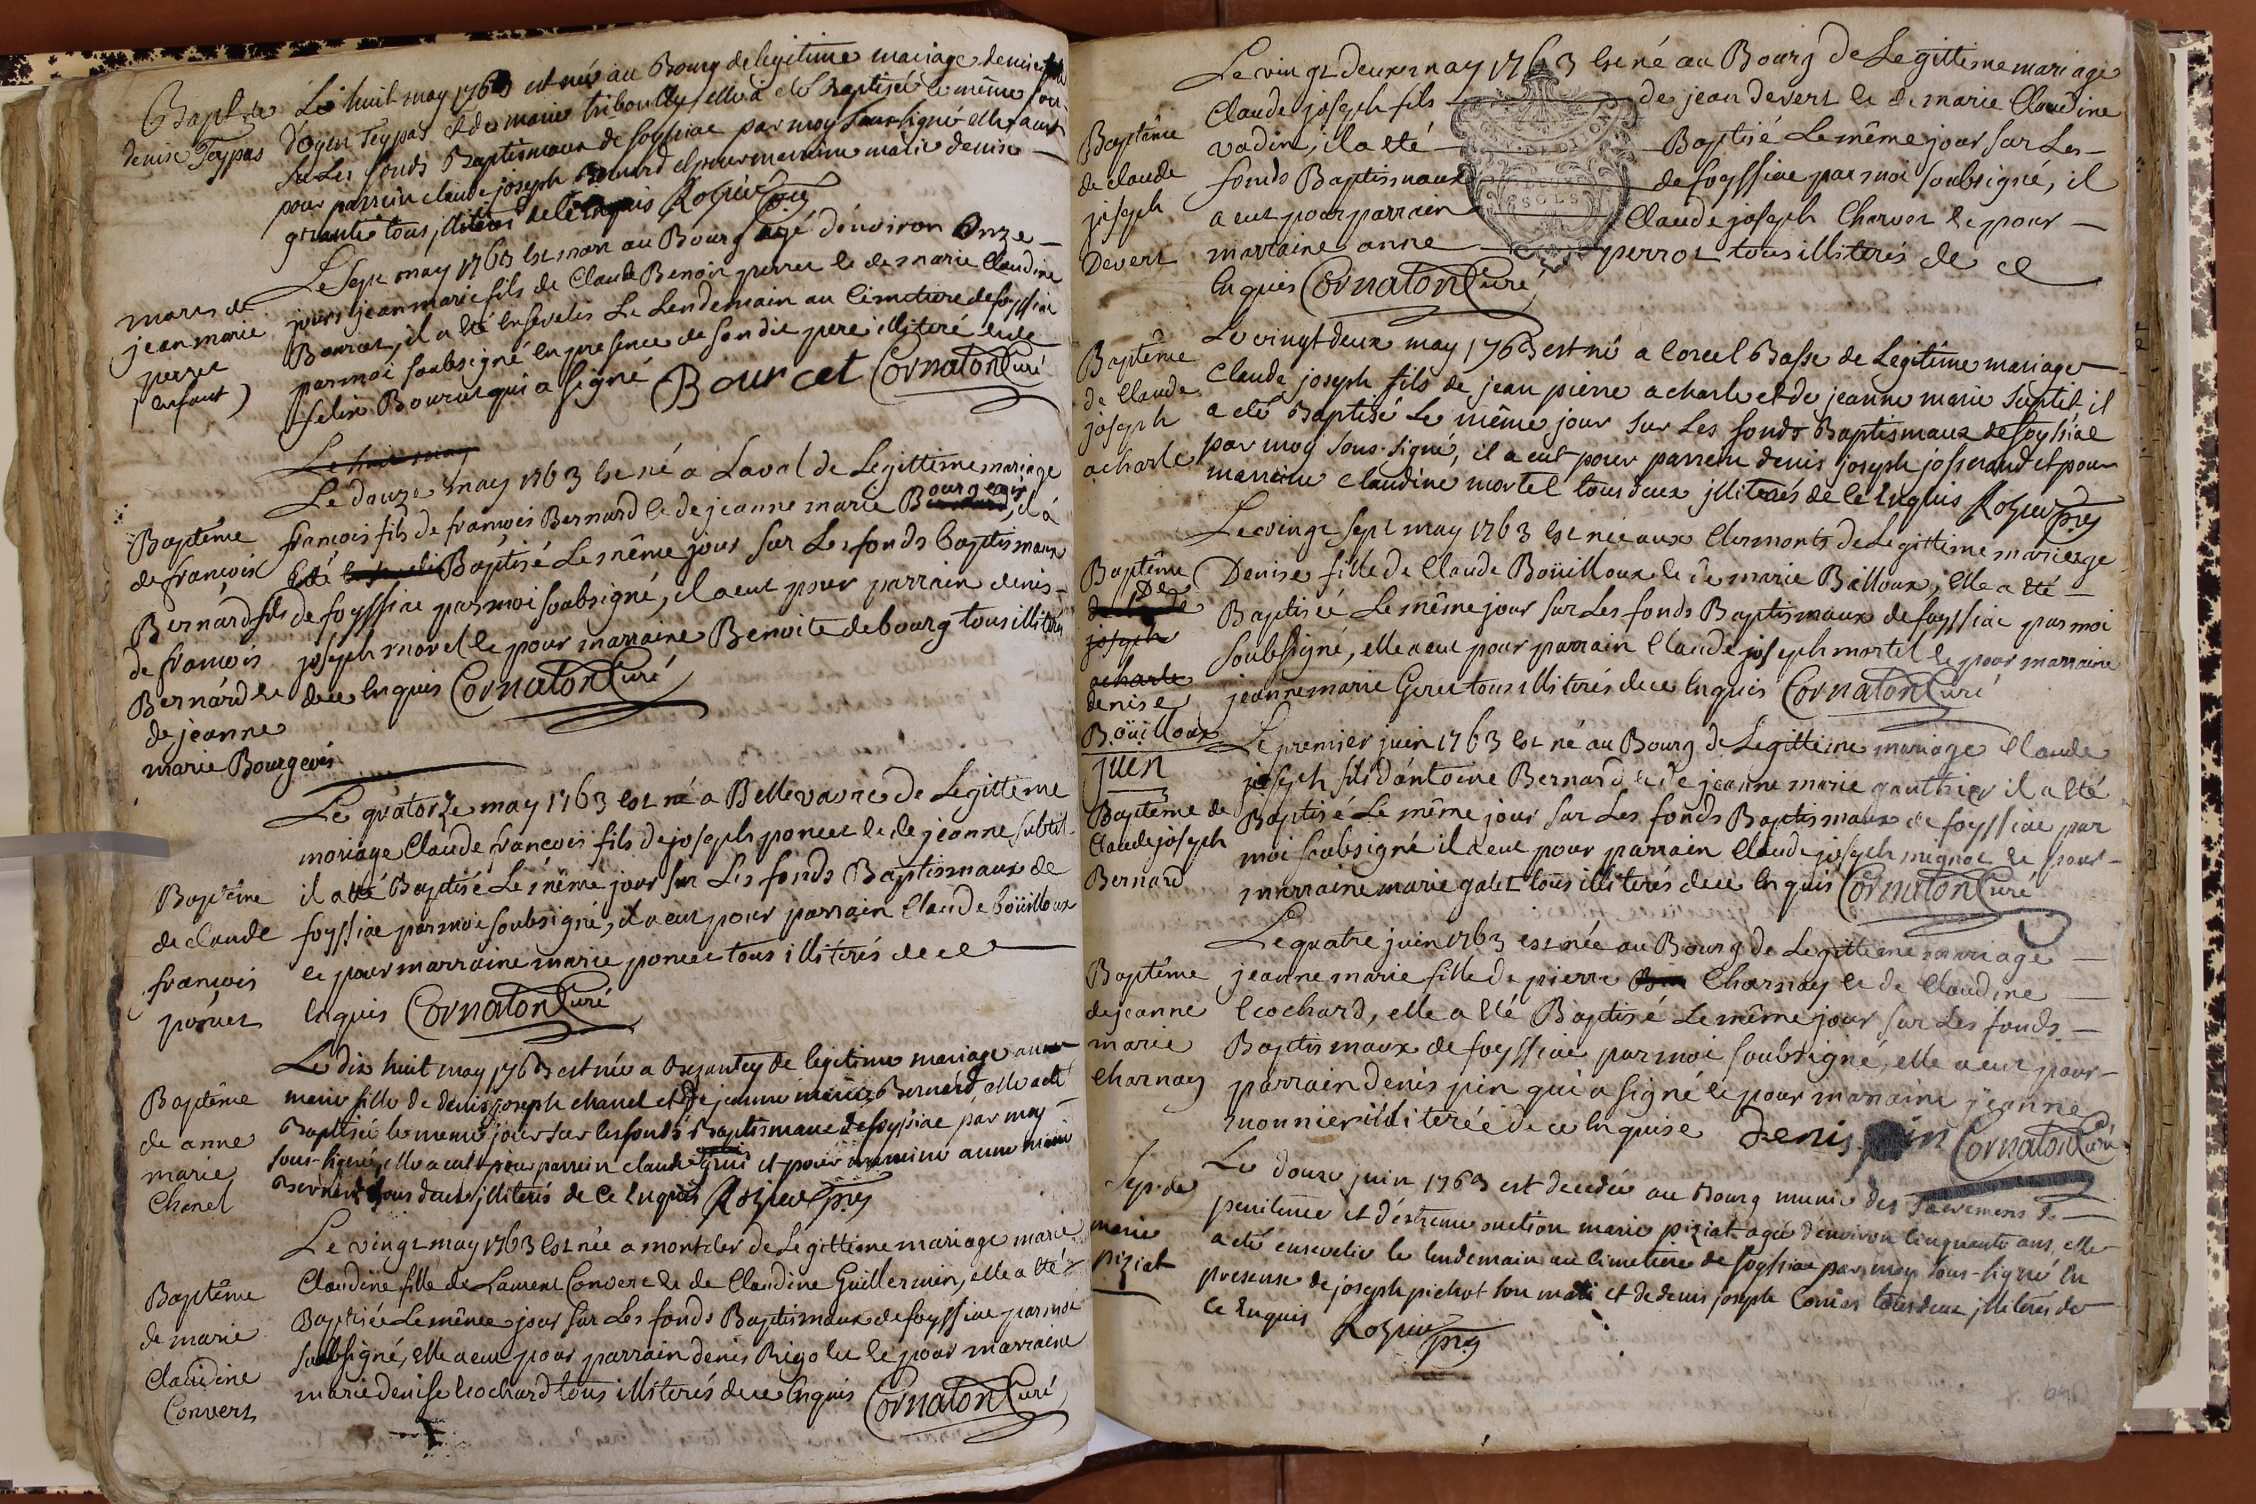 Baptême
denise Feypas
Le huit may 1763 est née au Bourg de legitime mariage denise fille
d'oyen Feypas et de marie tribouillet elle a été Baptisée le même jour
sur Les fonds Baptismaux de foyssiac par moy sous-signé elle a eut
pour parrein claude joseph Bernard et pour marreine marie denise
tous illiterés de ce Enquis Rozier ptre
mort de
jean marie
perret
(enfant)
Le Sept may 1763 est mort au Bourg agé d'environ Onze
jours jean marie fils de Claude Benoit perret et de marie Claudine
Bourcet, il a été Enseveli Le Lendemain au Cimetiere de foyssiac
par moi soubsigné En presence de son dit pere illiteré et de
felix Bourcet qui a signé Bourcet Cornaton Curé
Le huit may
Baptême
de françois
Bernard fils
de françois
Bernard et
de jeanne
marie Bourgeois
Le douze may 1763 est né a Laval de Legittime mariage
françois fils de françois Bernard et de jeanne marie Bourgeois, il a
été Baptisé Le même jour sur Les fonds baptismaux
de foyssiac par moi soubsigné, il a eut pour parrain denis
joseph morel et pour marraine Benoite debourg tous illiterés
de ce Enquis Cornaton Curé
Baptême
de claude
françois
poncet
Le quatorze may 1763 est né a Bellevavre de Legittime
mariage Claude françois fils de joseph poncet et de jeanne subtil
il a été Baptisé Le même jour sur Les fonds Baptismaux de
foyssiac par moi soubsigné, il a eut pour parrain Claude boüilloux
et pour marraine marie poncet tous illiterés de ce
Enquis Cornaton Curé
Baptême
de anne
marie
Chanel
Le dix huit may 1763 est née a de legitime mariage anne
marie fille de denis joseph chanel et de jeanne marie Bernard, elle a été
Baptisée le meme jour sur les fonds Baptismaux de foyssiac par moy
sous-signé, elle a eut pour parrein claude et pour marreine anne marie
Bernard tous deux illiterés de ce Enquis Rozier ptre
Baptême
de marie
Claudine
Convert
Le vingt may 1763 est née a montcler de Legittime mariage marie
Claudine fille de Laurent Convert et de Claudine Guillermin, elle a été
Baptisée Le même jour sur Les fonds Baptismaux de foyssiac par moi
soubsigné, elle a eut pour parrain denis Rigolet et pour marraine
marie denise Ecochard tous illiterés de ce Enquis Cornaton Curé
Baptême
de claude
joseph
Devert
Le vingt deux may 1763 est né au Bourg de Legittime mariage
Claude joseph fils de jean devert et de marie Claudine
vadin, il a été Baptisé Le même jour sur Les
fonds Baptismaux de foyssiac par moi soubsigné, il
a eut pour parrain Claude joseph Charvet et pour
marraine anne perrot tous illiterés de ce
Enquis Cornaton Curé
SOLS
Baptême
de Claude
joseph
acharle
Le vingt deux may 1763 est né a Corcel Basse de Legitime mariage
Claude joseph fils de jean pierre acharle et de jeanne marie Suptil il
a été Baptisé Le même jour sur Les fonds Baptismaux de foyssiac
par moy sous-signé, il a eut pour parrein denis joseph josserand et pour
marreine claudine mortel tous deux illiterés de ce Enquis Rozier ptre
Baptême
De
joseph
acharle
denise
Boüilloux
Le vingt Sept may 1763 est née aux Clermonts de Legittime mariage
Denise fille de Claude Boüilloux et de marie Balloux, elle a été
Baptisée Le même jour sur Les fonds Baptismaux de foyssiac par moi
soubsigné, elle a eut pour parrain Claude joseph mortel et pour marraine
jeanne marie Geret tous illiterés de ce Enquis Cornaton Curé
juin
Baptême de
Claude joseph
Bernard
Le premier juin 1763 est né au Bourg de Legittime mariage Claude
joseph fils d'antoine Bernard et de jeanne marie gauthier il a été
Baptisé Le même jour sur Les fonds Baptismaux de foyssiac par
moi soubsigné il a eut pour parrain Claude joseph mignot et pour
marraine marie galet tous illiterés de ce Enquis Cornaton Curé
Baptême
de jeanne
marie
Charnay
Le quatre juin 1763 est née au Bourg de Legittime mariage
jeanne marie fille de pierre Charnay et de Claudine
Ecochard, elle a été Baptisé Le même jour sur Les fonds
Baptismaux de foyssiac par moi soubsigné, elle a eut pour
parrain denis pin qui a signé et pour marraine jeanne
monnier illiterée de ce Enquise denis pin Cornaton Curé
Sep. de
marie
piziat
Le douze juin 1763 est decedée au Bourg munie des Sacremens de
penitence et d'extreme onction marie piziat agée d'environ Cinquante ans, elle
a été ensevelie le lendemain au Cimetiere de foyssiac par moy sous-signé En
presence de joseph pichot son mari et de denis joseph tous deux illiterés de
Ce Enquis Rozier ptre